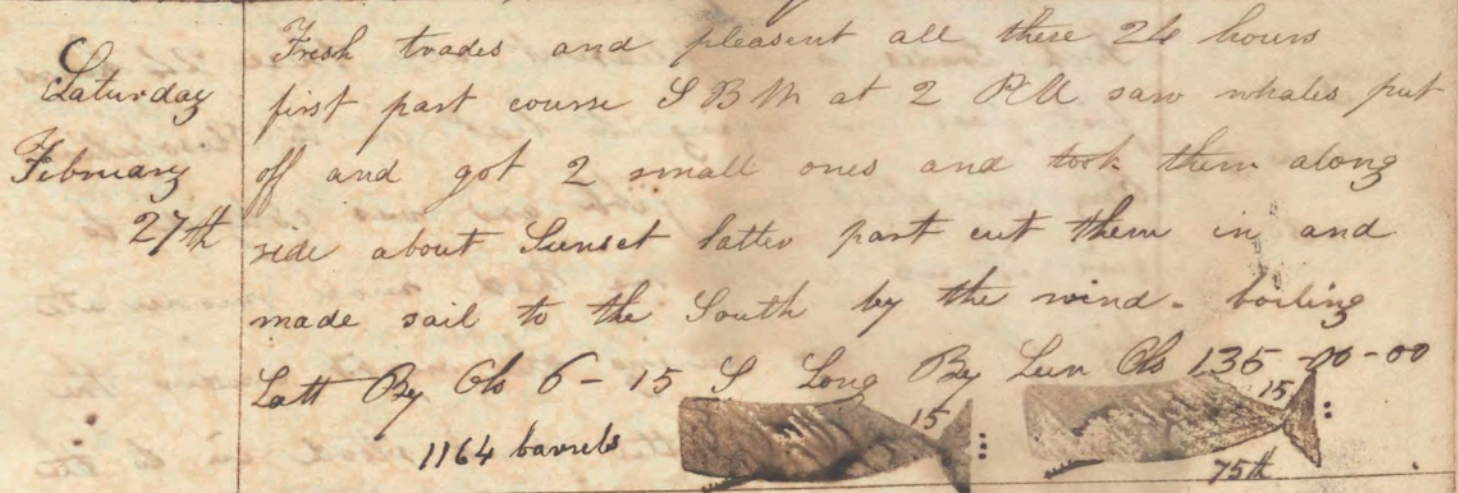 Saturday
February
27th
Fresh trades and pleasent all these 24 hours
first part course S B W at 2 P.M saw whales put
off and got 2 small ones and took them along
side about Sunset latter part cut them in and
made sail to the South by the wind - boiling
Latt By Obs 6 - 15 S Long By Lun Obs 135 - 00 - 00
1164 barrels
15
15
75th